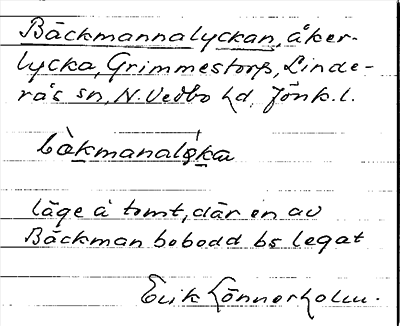 Bäckmannalyckan, åker-
lycka, Grimmestorp, Linde-
rås sn, N. Vedbo hd, Jönk. l.
bàkmanalẙka
läge å tomt, där en av
Bäckman bebodd bs legat
Erik Lönnerholm.